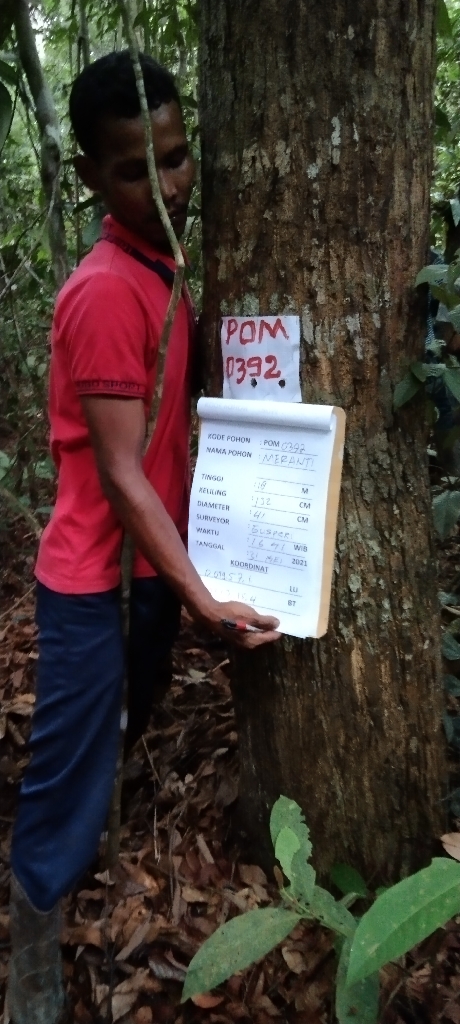 POM
0392
KODE POHON : POM 0392
NAMA POHON : MERANTI
TINGGI : 18 M
KELILING : 132 CM
DIAMETER : 41 CM
SURVEYOR :
WAKTU : 16 47 WIB
TANGGAL : 31 MEI 2021
KOORDINAT
LU
BT